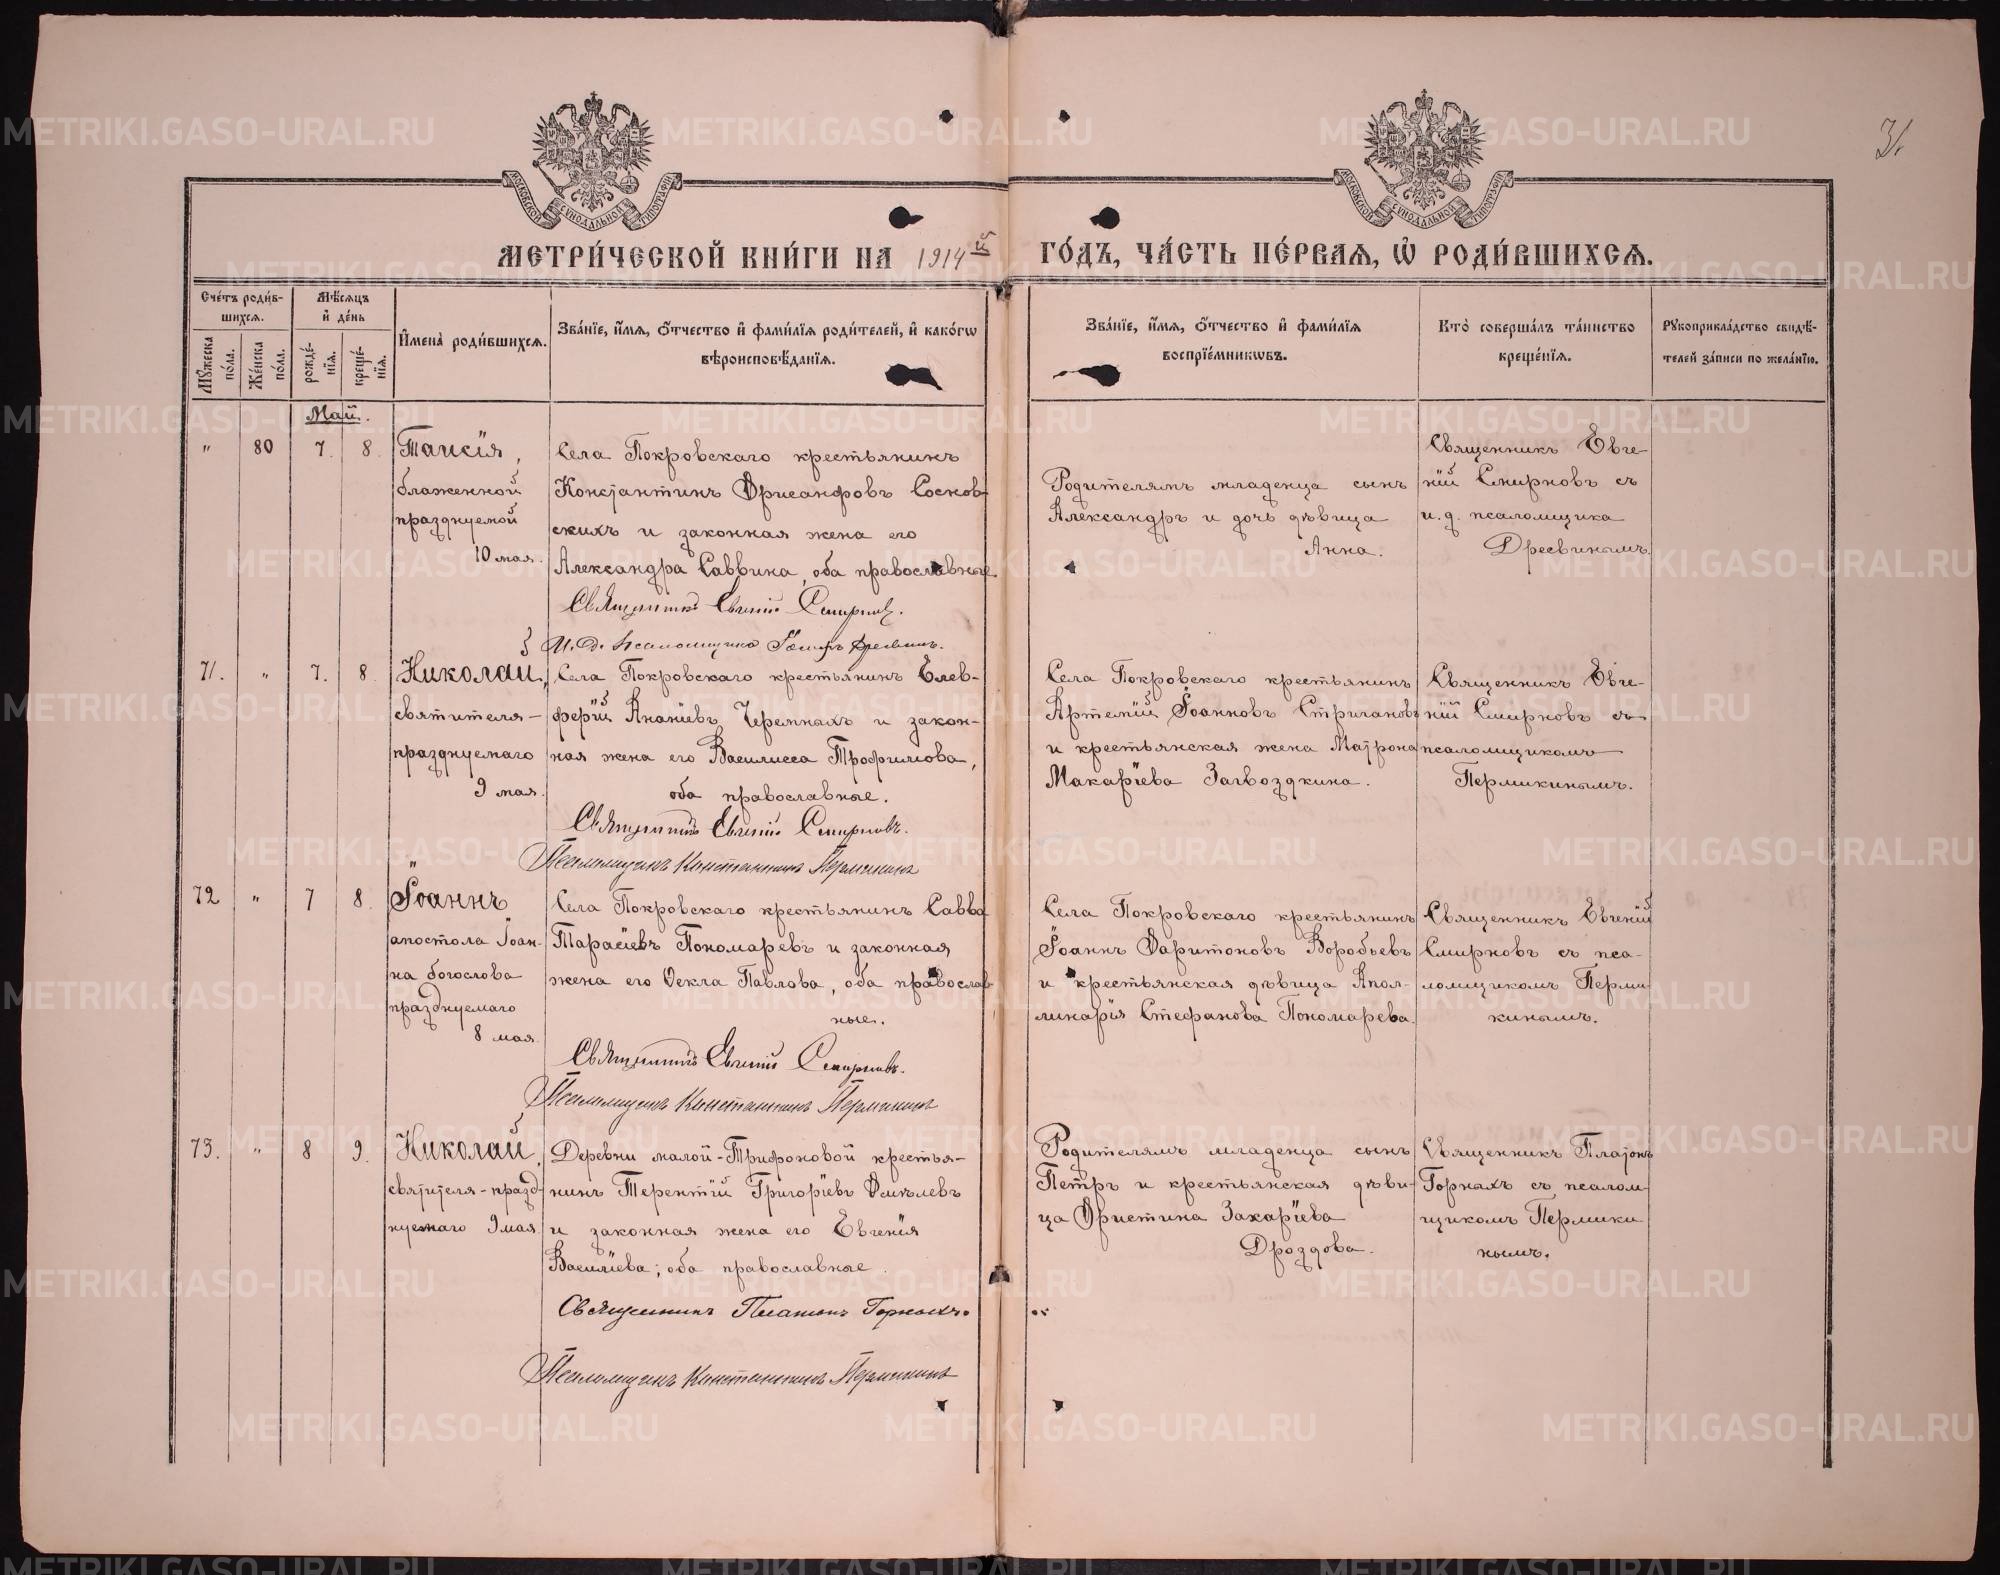 31
МОСКОВСКОЙ СѴНОДАЛЬНОЙ ТИПОГРАФІИ
МОСКОВСКОЙ СѴНОДАЛЬНОЙ ТИПОГРАФІИ
МЕТРИ́ЧЕСКОЙ КНИ́ГИ НА 1914й ГО́ДЪ, ЧА́СТЬ ПЕ́РВАѦ, Ѡ РОДИ́ВШИХСѦ.
Сче́тъ роди́в-
шихсѧ.
Мꙋжеска по́лꙋ.
Же́нска по́лꙋ.
Мѣ́сѧцъ
и҆ де́нь
рожде́нїѧ.
креще́нїѧ.
И҆мена̀ роди́вшихсѧ.
Зва́нїе, и҆́мѧ, о҆́тчество и҆ фами́лїѧ роди́телей, и҆ како́гѡ
вѣроисповѣ́данїѧ.
Зва́нїе, и҆́мѧ, о҆́тчество и҆ фами́лїѧ
воспрїе́мникѡвъ.
Кто̀ соверша́лъ та́инство
креще́нїѧ.
Рꙋкоприкла́дство свидѣ́-
телей за́писи по жела́нїю.
Май.
" 80 7. 8.
Таисія,
блаженной
празднуемой
10 мая.
Села Покровскаго крестьянинъ
Константинъ Хрисанфовъ Соснов-
скихъ и законная жена его
Александра Саввина, оба православные
Священникъ Евгеній Смирновъ.
И. д. псаломщика Дресвинъ.
Родителямъ младенца сынъ
Александръ и дочь дѣвица
Анна.
Священникъ Евге-
ній Смирновъ съ
и. д. псаломщика
Дресвинымъ.
71. " 7. 8.
Николай,
святителя-
празднуемаго
9 мая.
Села Покровскаго крестьянинъ Елев-
ферій Ананіевъ Черемныхъ и закон-
ная жена его Василисса Трофимова,
оба православные.
Священникъ Евгеній Смирновъ.
Псаломщикъ Константинъ Пермикинъ
Села Покровскаго крестьянинъ
Артемій Іоанновъ Стригановъ
и крестьянская жена Матрона
Макаріева Загвоздкина.
Священникъ Евге-
ній Смирновъ съ
псаломщикомъ
Пермикинымъ.
72 " 7 8.
Іоаннъ
апостола Іоан-
на богослова
празднуемаго
8 мая.
Села Покровскаго крестьянинъ Савва
Тарасіевъ Пономаревъ и законная
жена его Ѳекла Павлова, оба православ
ные.
Священникъ Евгеній Смирновъ.
Псаломщикъ Константинъ Пермикинъ
Села Покровскаго крестьянинъ
Іоаннъ Харитоновъ Воробьевъ
и крестьянская дѣвица Апол-
линарія Стефанова Пономарева.
Священникъ Евгеній
Смирновъ съ пса-
ломщикомъ Перми-
кинымъ.
73. " 8 9.
Николай,
святителя-празд-
нуемаго 9 мая
Деревни малой-Трифоновой крестья-
нинъ Терентій Григоріевъ Хмѣлевъ
и законная жена его Евгенія
Василіева; оба православные.
Священникъ Платонъ Горныхъ.
Псаломщикъ Константинъ Пермикинъ
Родителямъ младенца сынъ
Петръ и крестьянская дѣви-
ца Христина Захаріева
Дроздова.
Священникъ Платонъ
Горныхъ съ псалом-
щикомъ Пермики
нымъ.
METRIKI.GASO-URAL.RU